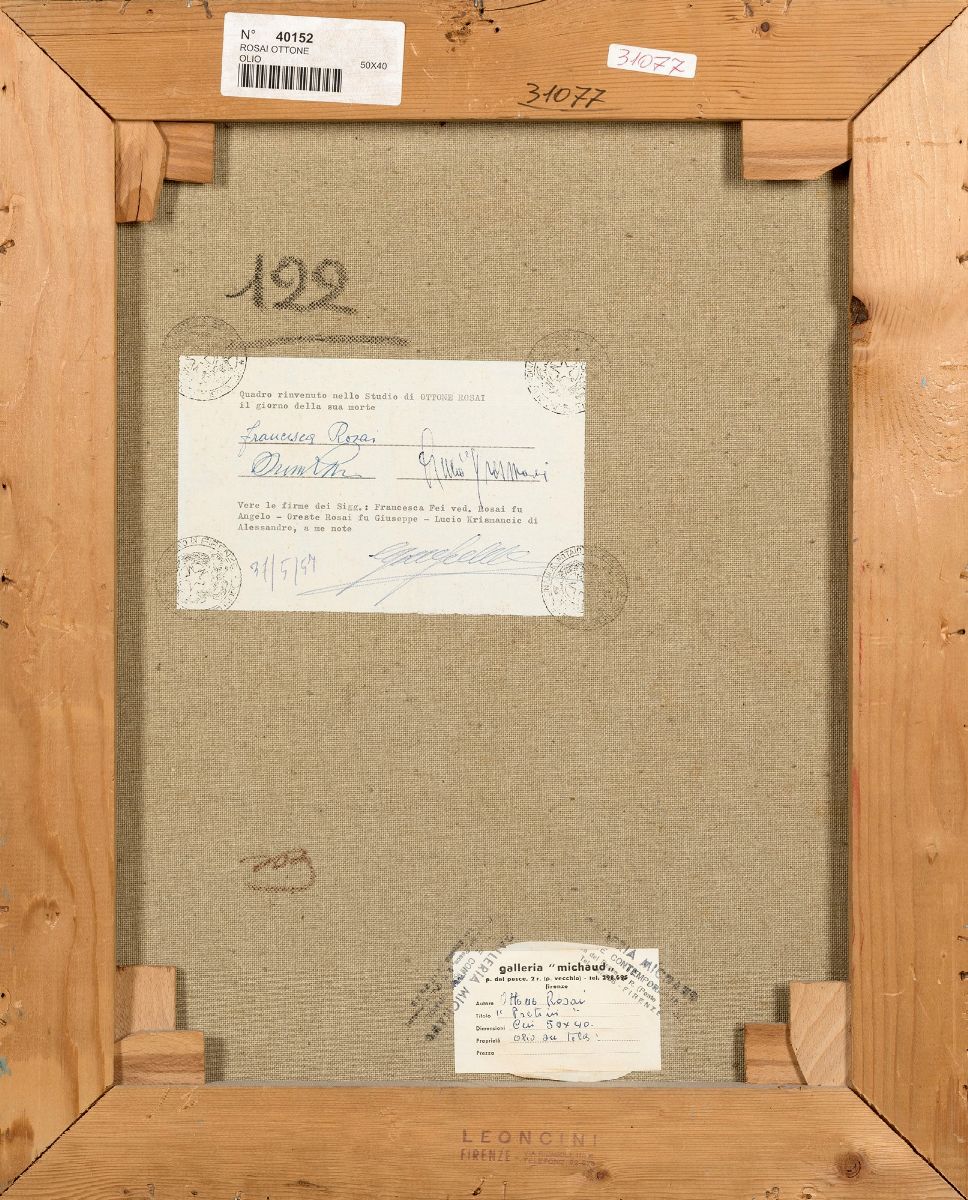 N° 40152
ROSAI OTTONE
OLIO 50X40
31077
31077
122
Quadro rinvenuto nello Studio di OTTONE ROSAI
il giorno della sua morte
Francesca Rosai
Vere le firme dei Sigg.: Francesca Fei ved. Rosai fu
Angelo - Oreste Rosai fu Giuseppe - Lucio Krismancic di
Alessandro, a me note
galleria "michaud"
p. del pesce, 2 r. (p. vecchio) - tel. 298.695
firenze
Autore Ottone Rosai
Titolo "Pretini"
Dimensioni Cm 50x40.
Proprietà olio su tela
Prezzo
LEONCINI
FIRENZE